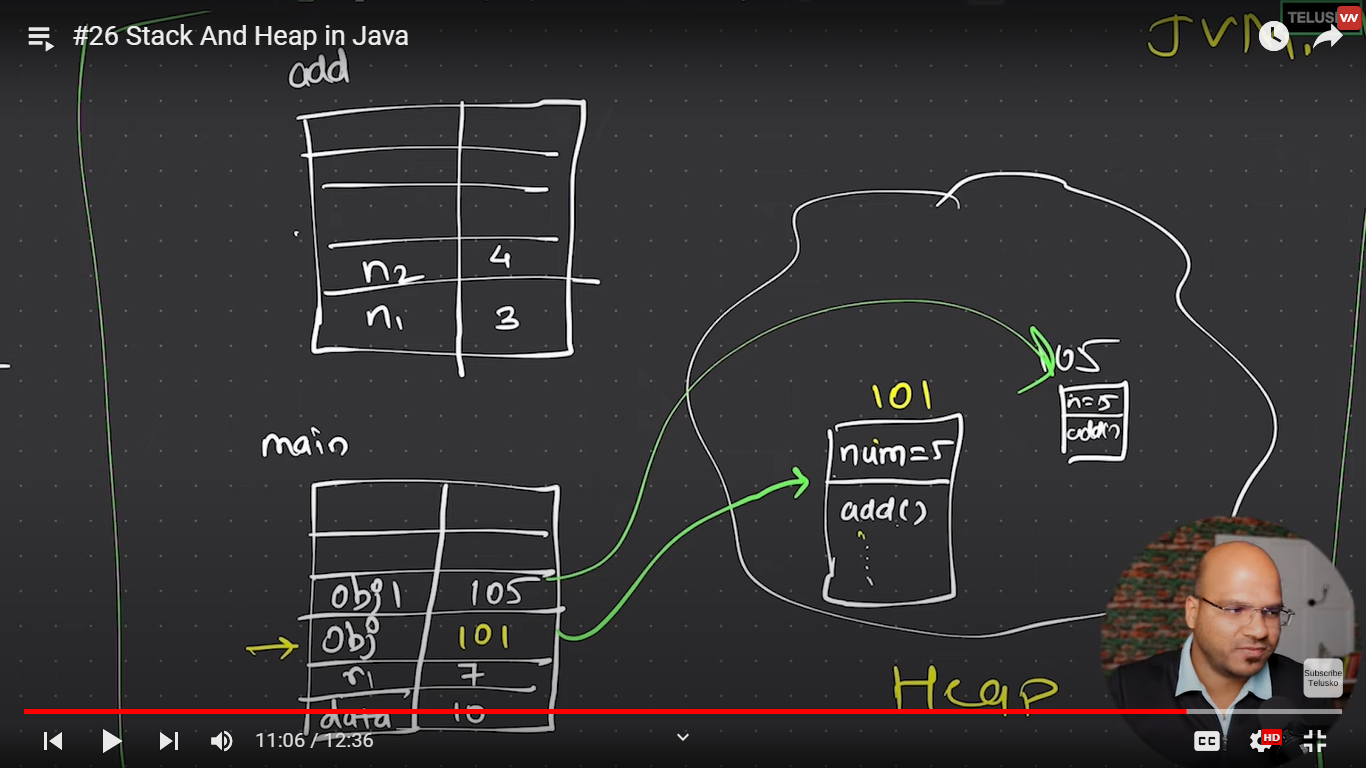 #26 Stack And Heap in Java
TELUSKO
JVM.
add
n2 4
n1 3
main
obj1 105
obj 101
r1 7
data 10
101
num=5
add()
105
n=5
add()
Heap
Subscribe
Telusko
11:06 / 12:36
CC
HD